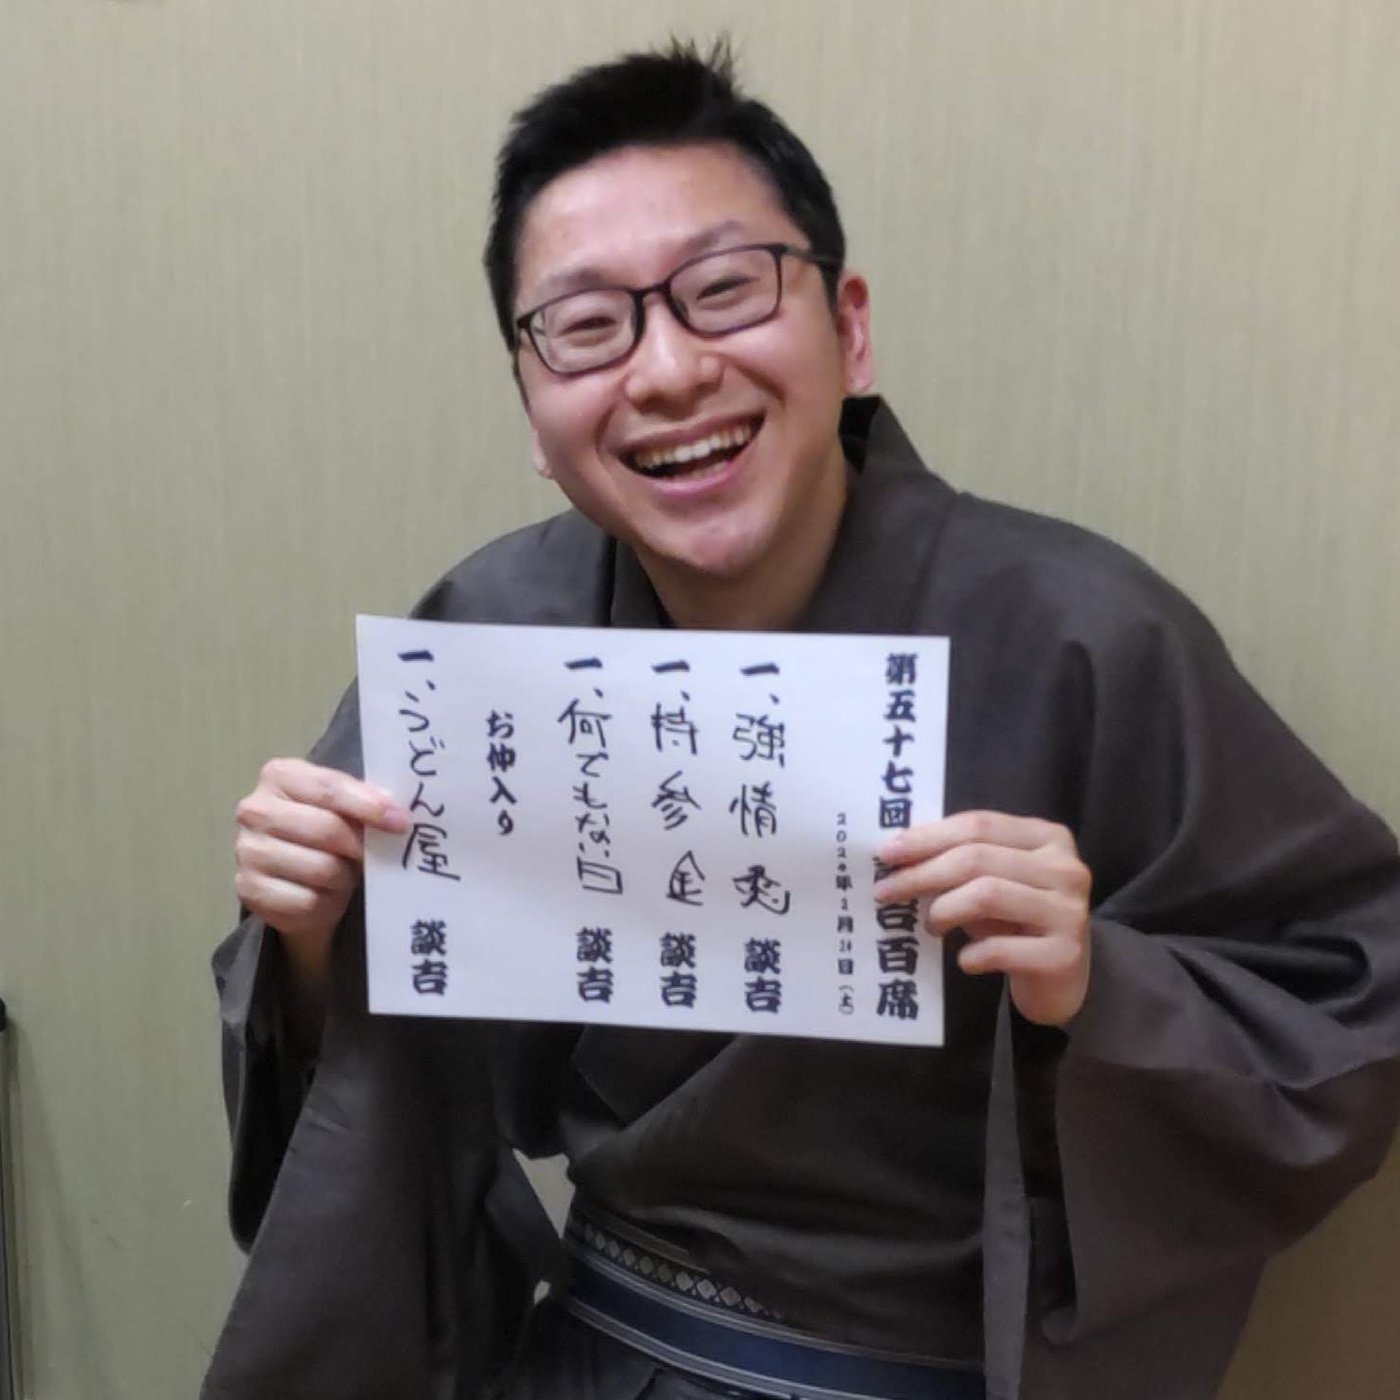 第五十七回 談吉百席
2024年2月24日(土)
一、強情灸 談吉
一、持参金 談吉
一、何でもない日 談吉
お仲入り
一、うどん屋 談吉